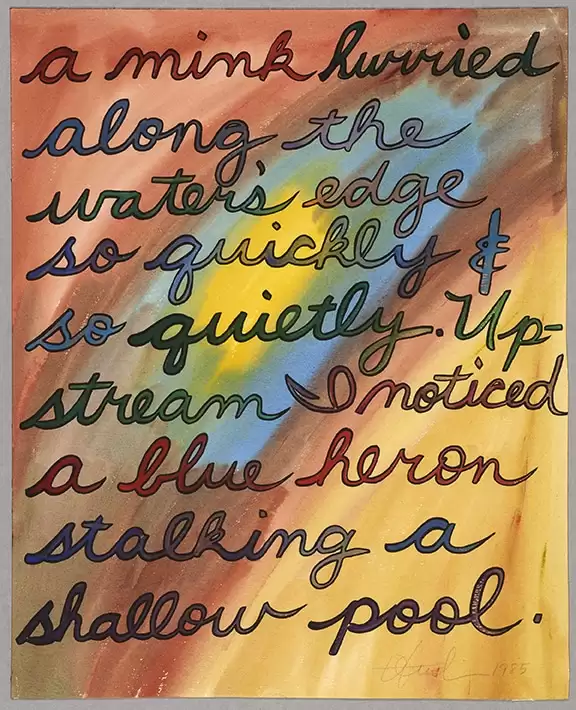 a mink hurried
along the
water's edge
so quickly &
so quietly. Up-
stream I noticed
a blue heron
stalking a
shallow pool.
1985